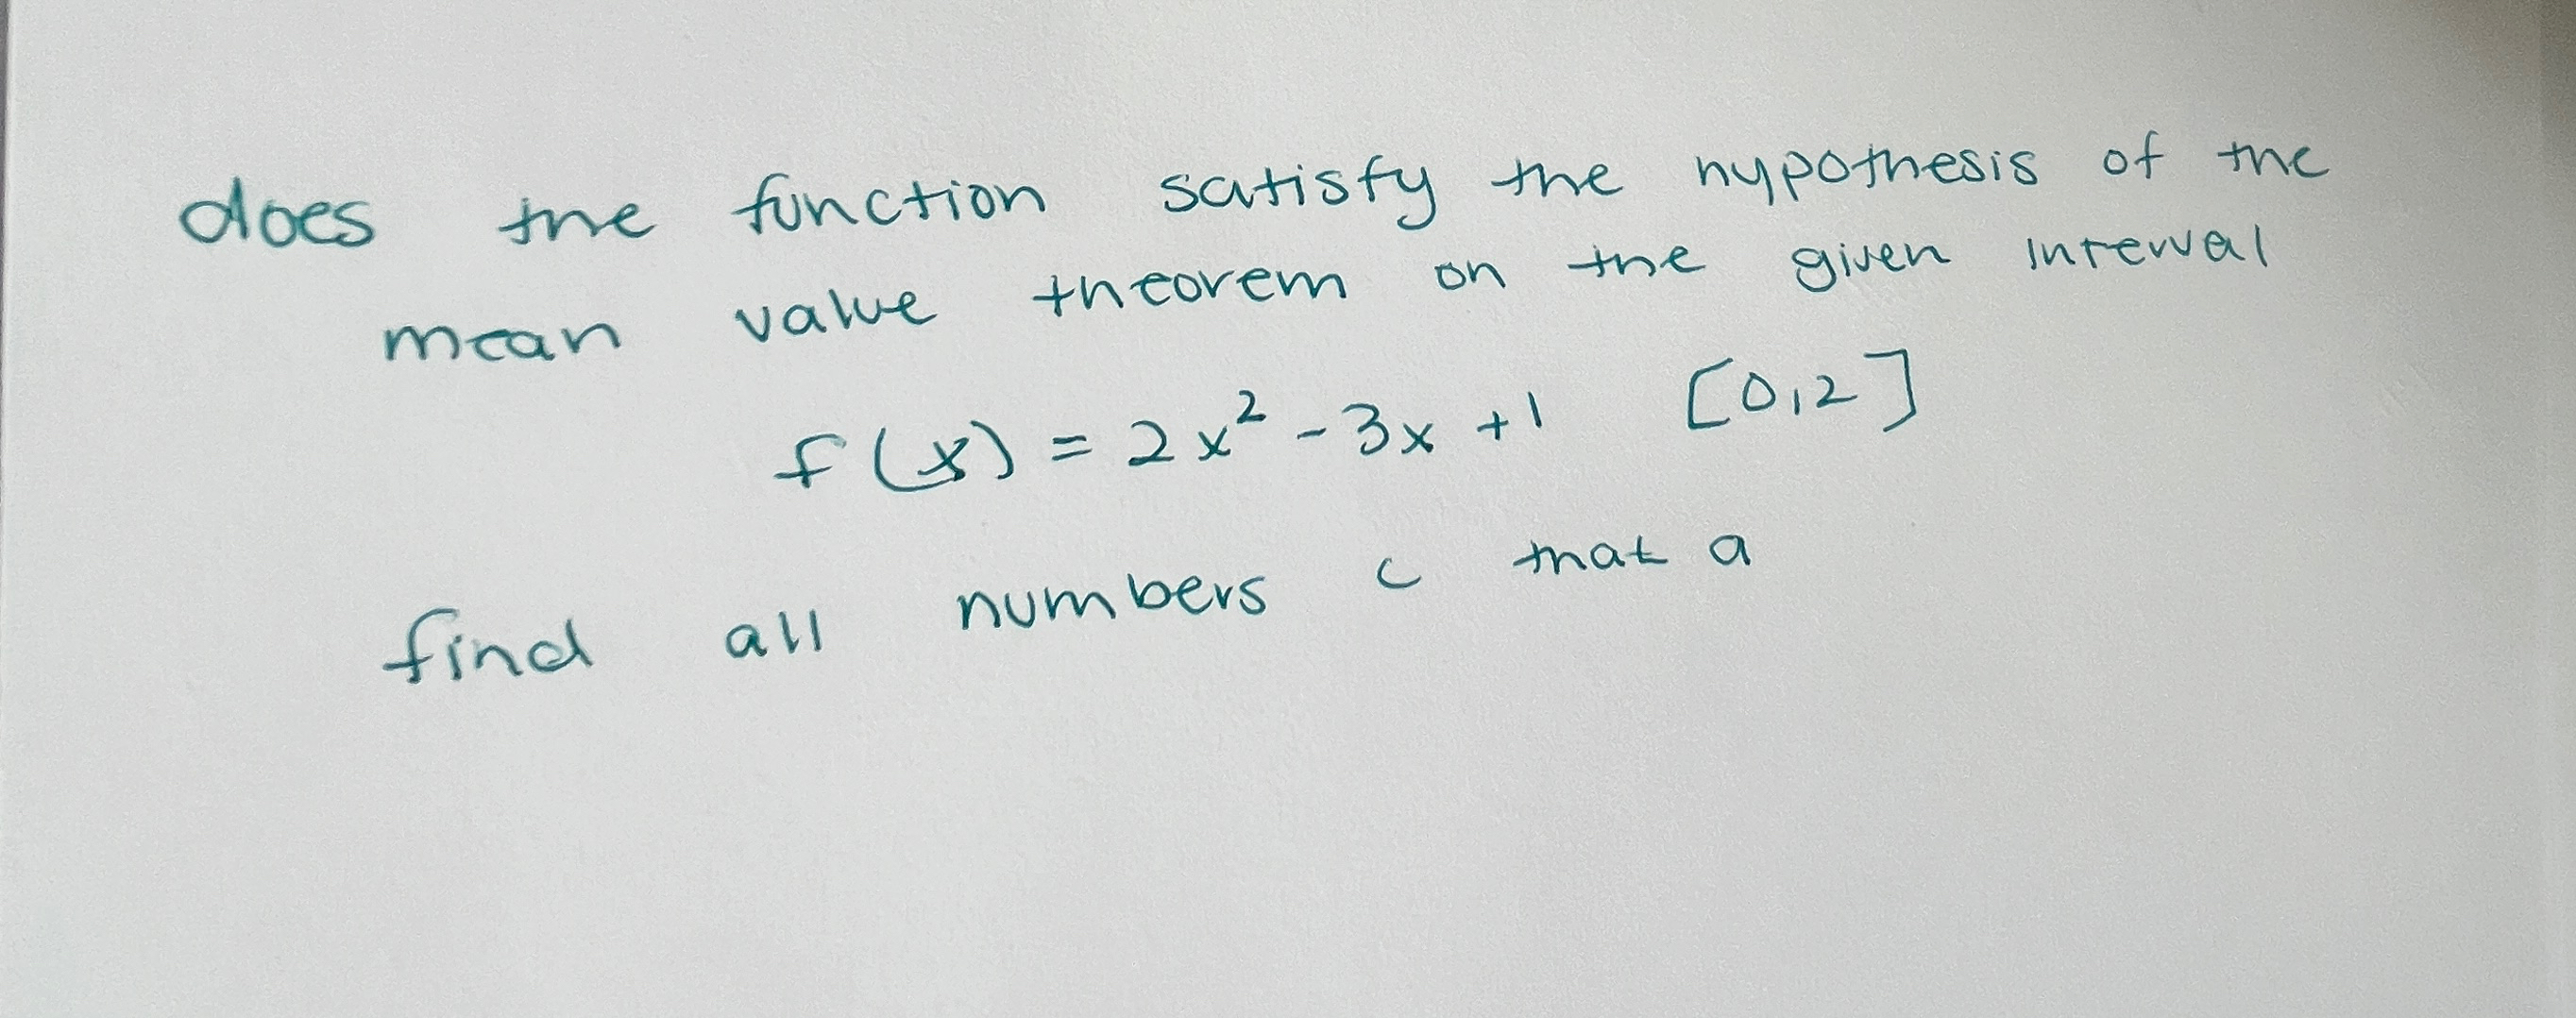 does the function satisfy the hypothesis of the
mean value theorem on the given interval
f(x) = 2x² - 3x + 1 [0,2]
find all numbers c that a